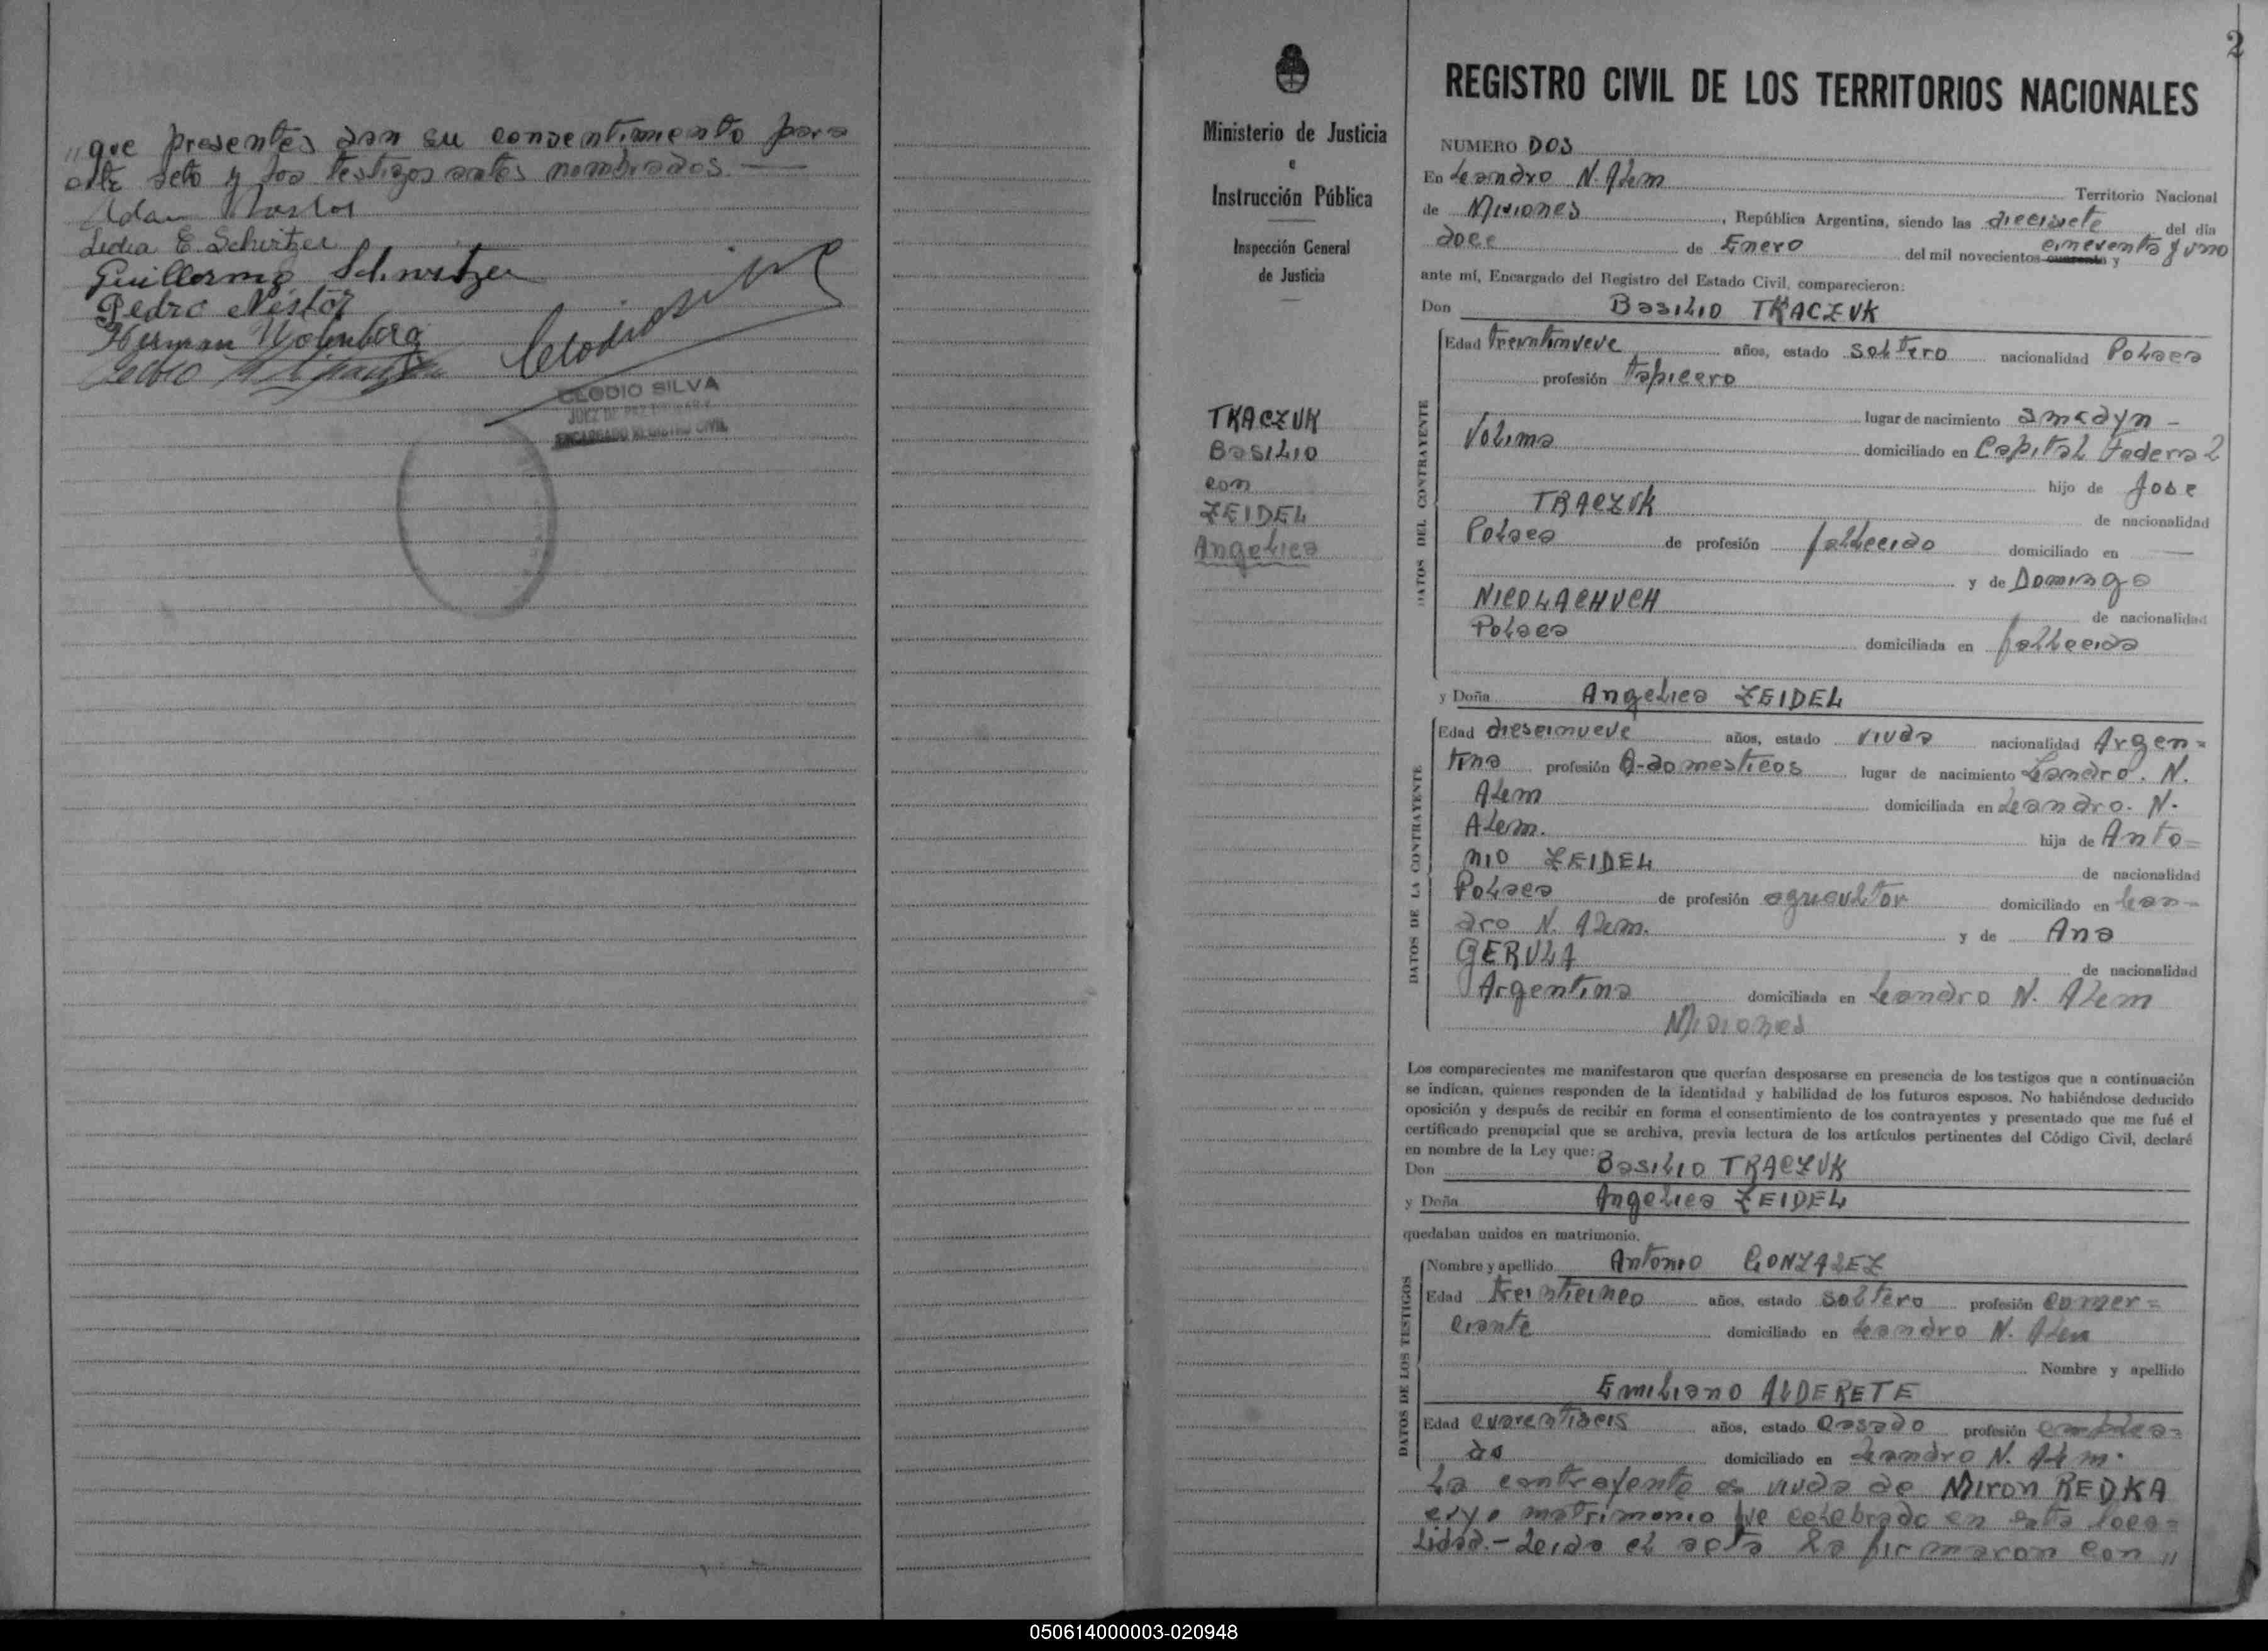 "que presentes dan su consentimiento para
este acto y los testigos antes nombrados. —
Adan
Lidia E. Schwitzer
Guillermo Schwitzer
Pedro Néstor
Herman Wolenberg
Clodio Silva
CLODIO SILVA
JUEZ DE PAZ
ENCARGADO REGISTRO CIVIL
Ministerio de Justicia
e
Instrucción Pública
Inspección General
de Justicia
TKACZUK
Basilio
con
ZEIDEL
Angelica
2
REGISTRO CIVIL DE LOS TERRITORIOS NACIONALES
NUMERO DOS
En Leandro N. Alem Territorio Nacional
de Misiones, República Argentina, siendo las diecisiete del día
doce de Enero del mil novecientos cuarenta y cincuenta y uno
ante mí, Encargado del Registro del Estado Civil, comparecieron:
Don Basilio TKACZUK
DATOS DEL CONTRAYENTE
Edad treintinueve años, estado soltero nacionalidad Polaca
profesión tapicero
lugar de nacimiento Smcdyn -
Volima domiciliado en Capital Federal
hijo de Jose
TRACZUK de nacionalidad
Polaca de profesión fallecido domiciliado en —
y de Dominga
NICOLACHUCH de nacionalidad
Polaca domiciliada en fallecida
y Doña Angelica ZEIDEL
DATOS DE LA CONTRAYENTE
Edad dieceinueve años, estado viuda nacionalidad Argen=
tina profesión Q-domesticos lugar de nacimiento Leandro. N.
Alem domiciliada en Leandro. N.
Alem. hija de Anto=
nio ZEIDEL de nacionalidad
Polaca de profesión agricultor domiciliado en Lean=
dro N. Alem. y de Ana
GERULA de nacionalidad
Argentina domiciliada en Leandro N. Alem
Misiones
Los comparecientes me manifestaron que querían desposarse en presencia de los testigos que a continuación
se indican, quienes responden de la identidad y habilidad de los futuros esposos. No habiéndose deducido
oposición y después de recibir en forma el consentimiento de los contrayentes y presentado que me fué el
certificado prenupcial que se archiva, previa lectura de los artículos pertinentes del Código Civil, declaré
en nombre de la Ley que:
Don Basilio TRACZUK
y Doña Angelica ZEIDEL
quedaban unidos en matrimonio.
DATOS DE LOS TESTIGOS
Nombre y apellido Antonio GONZALEZ
Edad treinticinco años, estado soltero profesión comer=
ciante domiciliado en Leandro N. Alem
Nombre y apellido
Emiliano ALDERETE
Edad cuarentiseis años, estado casado profesión emplea=
do domiciliado en Leandro N. Alem.
La contrayente es viuda de Miron REDKA
cuyo matrimonio fue celebrado en esta loca=
lidad.- Leida el acta la firmaron con "
050614000003-020948